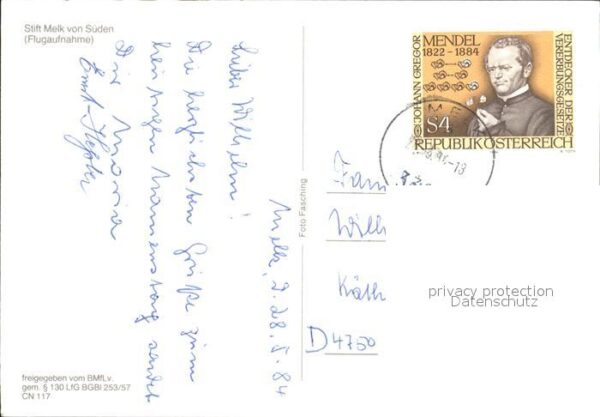 Stift Melk von Süden
(Flugaufnahme)
Melk, D. 28. 5. 84
Lieber Wilhelm!
Die herzlichsten Grüße zum
heutigen Namenstag sendet
Dir Maria
Ernst
freigegeben vom BMfLv.
gem. § 130 LfG BGBl 253/57
CN 117
Foto Fasching
JOHANN GREGOR
MENDEL
1822 - 1884
ENTDECKER DER
VERERBUNGSGESETZE
S4
REPUBLIK ÖSTERREICH
Fam
Wilh
Käth
D 4750
privacy protection
Datenschutz